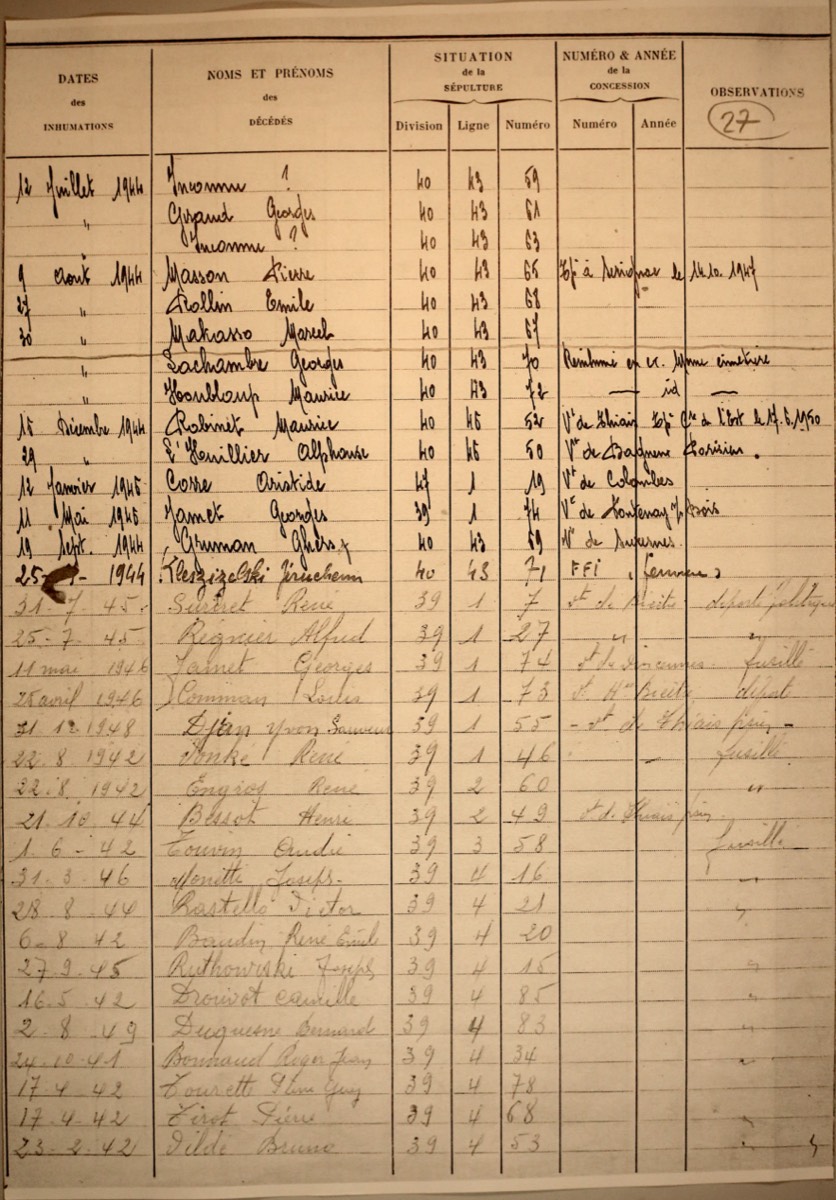 DATES
des
INHUMATIONS
NOMS ET PRÉNOMS
des
DÉCÉDÉS
SITUATION
de la
SÉPULTURE
Division Ligne Numéro
NUMÉRO & ANNÉE
de la
CONCESSION
Numéro Année
OBSERVATIONS
27
12 Juillet 1944 Inconnu ? 40 43 59
" Giraud Georges 40 43 61
" Inconnu ? 40 43 63
9 Aout 1944 Masson Pierre 40 43 65 le 14.10.1947
27 " Rollin Emile 40 43 68
30 " Makasso Marcel 40 43 67
" Lachambre Georges 40 43 70 Réinhumé en cimetière
" Houbloup Maurice 40 43 72 — id —
15 Décembre 1944 Robinet Maurice 40 45 52 Vt de Thiais de l'Est le 17.5.1950
29 " L'Huillier Alphonse 40 45 50 Vt de Bagneux Parisien.
12 Janvier 1945 Corre Aristide 47 1 19 Vt de Colombes
11 Mai 1945 Jamet Georges 39 1 74 Vt de Fontenay s/ Bois
19 Sept. 1944 Gruman 40 43 59 Vt de Suresnes
25 1944 Kleszizelski Jeruchem 40 43 71 FFI
31-7-45 René 39 1 7 déporté politique
25-7-45 Régnier Alfred 39 1 27 " "
11 mai 1946 Jamet Georges 39 1 74 fusillé
25 avril 1946 Comman Louis 39 1 73
31 12 1948 Djian Yvon Sauveur 39 1 55 - vt de Thiais
22.8.1942 René 39 1 46 fusillé
22.8.1942 Engros René 39 2 60 "
21.10.44 Bessot Henri 39 2 49 vt de Thiais
1-6-42 Touvin André 39 3 58 fusillé
31.3.46 Monitti Joseph 39 4 16 "
28-8-44 Rastello Victor 39 4 21 "
6-8-42 Baudin René Emile 39 4 20
27-9-45 Ruthowiski Joseph 39 4 15 "
16.5.42 Drouvot Camille 39 4 85 "
2-8-49 Duquesne Bernard 39 4 83 "
24-10-41 Bonnaud Roger Jean 39 4 34 "
17-4-42 Tourette Guy 39 4 78 "
17-4-42 Tirot Pierre 39 4 68 "
23-2-42 Tilde Bruno 39 4 53 "